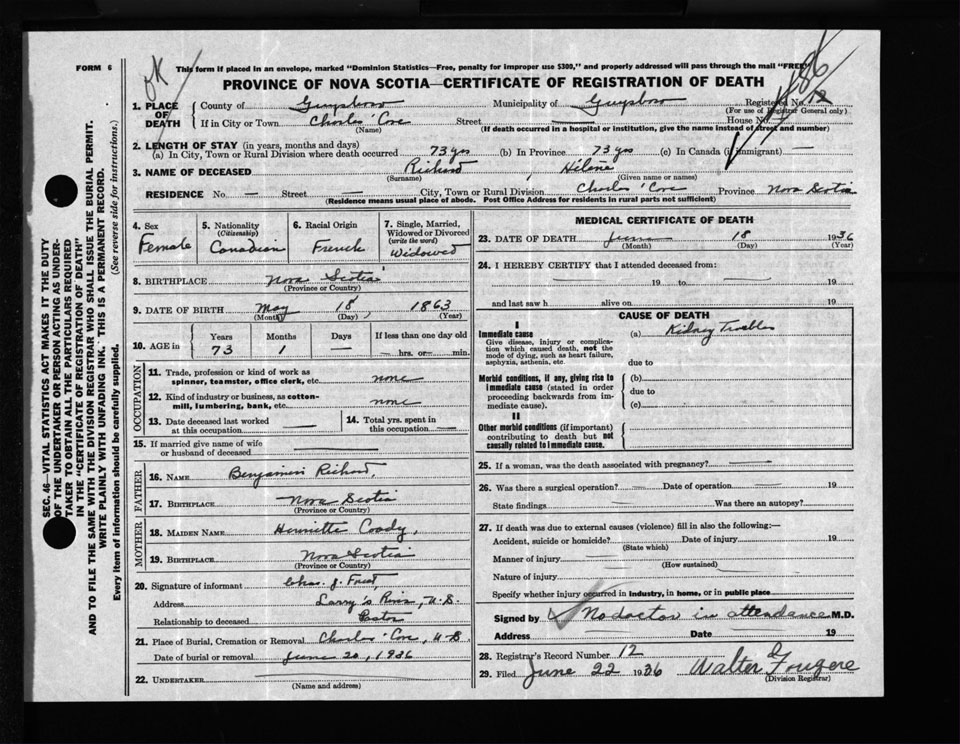 OK
FORM 6
This form if placed in an envelope, marked "Dominion Statistics—Free, penalty for improper use $300," and properly addressed will pass through the mail "FREE"
PROVINCE OF NOVA SCOTIA—CERTIFICATE OF REGISTRATION OF DEATH
1. PLACE OF DEATH
County of Guysboro Municipality of Guysboro Registered No. 12
(For use of Registrar General only)
If in City or Town Charles' Cove Street House No.
(Name) (If death occurred in a hospital or institution, give the name instead of street and number)
2. LENGTH OF STAY (in years, months and days)
(a) In City, Town or Rural Division where death occurred 73 yrs (b) In Province 73 yrs (c) In Canada (if immigrant) —
3. NAME OF DECEASED Richard, Hélène
(Surname) (Given name or names)
RESIDENCE No. — Street — City, Town or Rural Division Charles' Cove Province Nova Scotia
(Residence means usual place of abode. Post Office Address for residents in rural parts not sufficient)
4. Sex
Female
5. Nationality
(Citizenship)
Canadian
6. Racial Origin
French
7. Single, Married, Widowed or Divorced
(write the word)
Widowed
8. BIRTHPLACE Nova Scotia
(Province or Country)
9. DATE OF BIRTH May 18, 1863
(Month) (Day) (Year)
10. AGE in Years Months Days If less than one day old
73 1 — — hrs. or — min.
OCCUPATION
11. Trade, profession or kind of work as spinner, teamster, office clerk, etc. none
12. Kind of industry or business, as cotton-mill, lumbering, bank, etc. none
13. Date deceased last worked at this occupation —
14. Total yrs. spent in this occupation —
15. If married give name of wife or husband of deceased
FATHER
16. NAME Benjamin Richard,
17. BIRTHPLACE Nova Scotia
(Province or Country)
MOTHER
18. MAIDEN NAME Henriette Coady,
19. BIRTHPLACE Nova Scotia
(Province or Country)
20. Signature of informant Chas. J.
Address Larry's River, N.S.
Relationship to deceased
21. Place of Burial, Cremation or Removal Charles' Cove, N.S.
Date of burial or removal June 20, 1936
22. UNDERTAKER
(Name and address)
MEDICAL CERTIFICATE OF DEATH
23. DATE OF DEATH June 18 1936
(Month) (Day) (Year)
24. I HEREBY CERTIFY that I attended deceased from:
19 to 19
and last saw h alive on 19
CAUSE OF DEATH
I
Immediate cause
Give disease, injury or complication which caused death, not the mode of dying, such as heart failure, asphyxia, asthenia, etc.
(a) Kidney Troubles
due to
Morbid conditions, if any, giving rise to immediate cause (stated in order proceeding backwards from immediate cause).
(b)
due to
(c)
II
Other morbid conditions (if important) contributing to death but not causally related to immediate cause.
25. If a woman, was the death associated with pregnancy? —
26. Was there a surgical operation? — Date of operation — 19
State findings Was there an autopsy?
27. If death was due to external causes (violence) fill in also the following:—
Accident, suicide or homicide? Date of injury 19
(State which)
Manner of injury
(How sustained)
Nature of injury
Specify whether injury occurred in industry, in home, or in public place
Signed by No doctor in attendance M.D.
Address Date 19
28. Registrar's Record Number 12
29. Filed June 22 1936 Walter Fougere
(Division Registrar)
SEC. 46—VITAL STATISTICS ACT MAKES IT THE DUTY
OF THE UNDERTAKER OR PERSON ACTING AS UNDER-
TAKER TO OBTAIN ALL THE PARTICULARS REQUIRED
IN THE "CERTIFICATE OF REGISTRATION OF DEATH"
AND TO FILE THE SAME WITH THE DIVISION REGISTRAR WHO SHALL ISSUE THE BURIAL PERMIT.
WRITE PLAINLY WITH UNFADING INK. THIS IS A PERMANENT RECORD.
Every item of information should be carefully supplied. (See reverse side for instructions.)